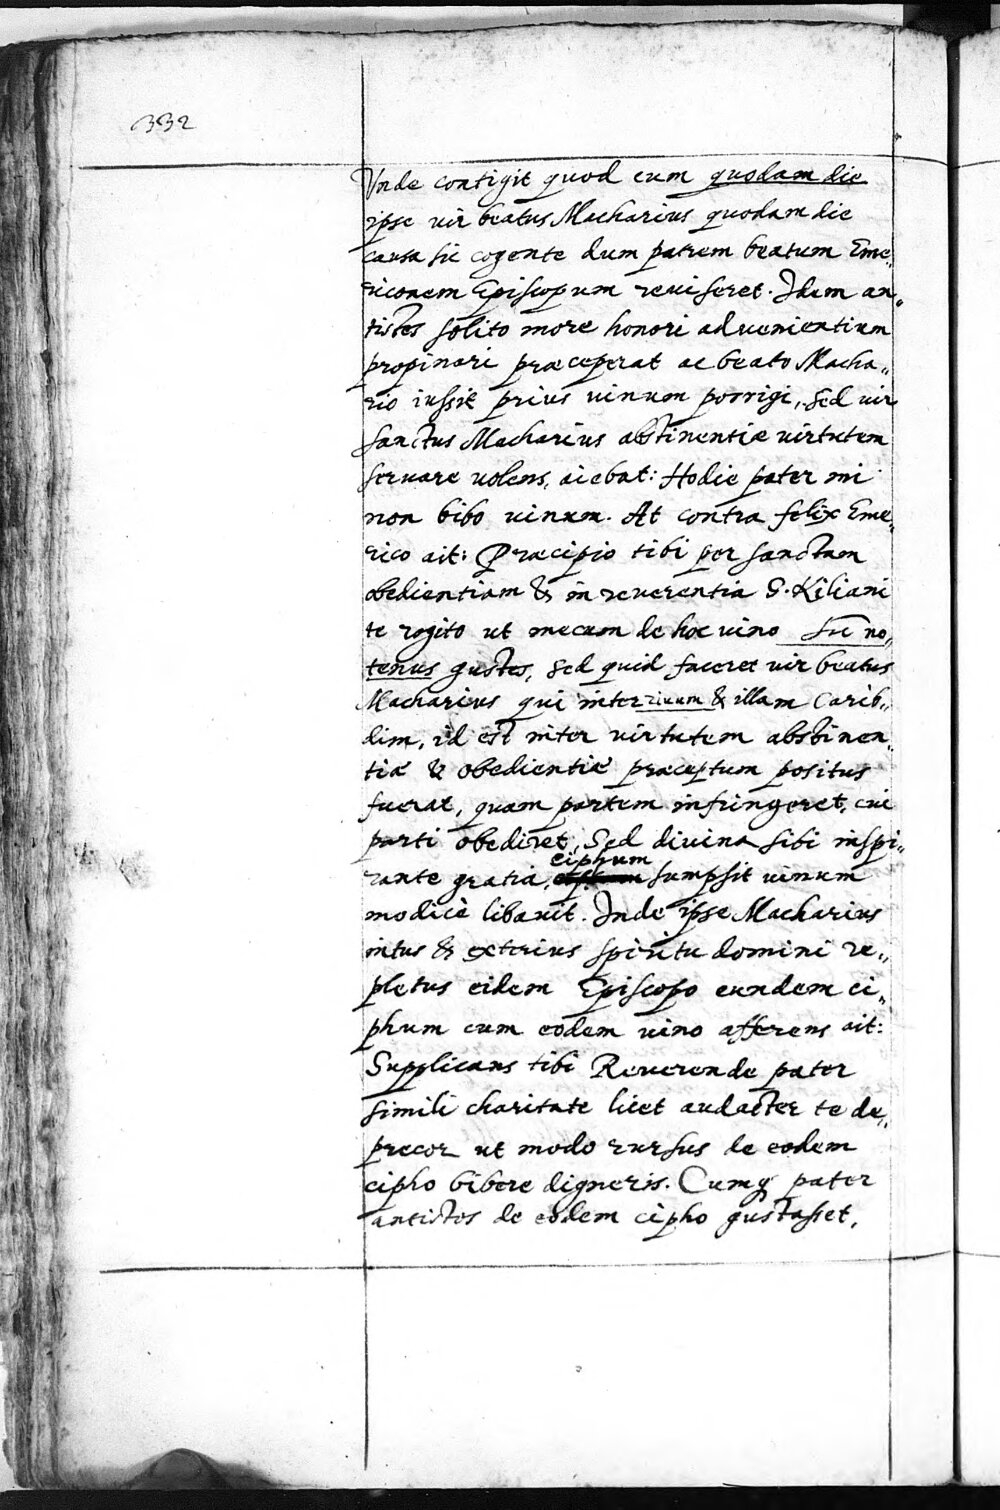 332
Vnde contigit quod cum quodam die
ipse uir beatus Macharius quodam die
causa sic cogente dum patrem beatum Eme„
riconem Episcopum reuiseret. Idem an„
tistes solito more honori aduenientium
propinari præceperat ac beato Macha„
rio iussit prius uinum porrigi, sed uir
sanctus Macharius abstinentiæ uirtutem
seruare uolens, aiebat: Hodie pater mi
non bibo uinum. At contra felix Eme„
rico ait: Præcipio tibi per sanctam
obedientiam & in reuerentia S. Kiliani
te rogito ut mecum de hoc uino sic no„
tenus gustes, sed quid faceret uir beatus
Macharius qui inter riuum & illam Carib„
dim, id est inter uirtutem abstinen„
tiæ & obedientiæ præceptum positus
fuerat, quam partem infringeret, cui
parti obediret, Sed diuina sibi inspi„
rante gratia, ciphum sumpsit uinum
modicè libauit. Inde ipse Macharius
intus & exterius spiritu domini re„
pletus eidem Episcopo eundem ci„
phum cum eodem uino afferens ait:
Supplicans tibi Reuerende pater
simili charitate licet audacter te de„
precor ut modo rursus de eodem
cipho bibere digneris. Cumq pater
antistes de eodem cipho gustasset,